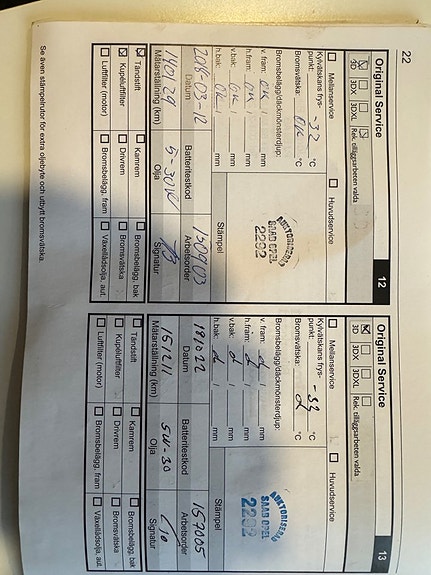 22
Original Service
12
3D
3DX
3DXL
Rek. tilläggsarbeten valda
Mellanservice
Huvudservice
Kylvätskans frys-
punkt:
-32
°C
Bromsvätska:
OK
°C
Bromsbelägg/däckmönsterdjup:
v. fram:
OK
/
mm
h.fram:
OK
/
mm
v.bak:
OK
/
mm
h.bak:
OK
/
mm
AUKTORISERAD
SAAB OPEL
2292
Stämpel
2018-03-12
150903
Datum
Batteritestkod
Arbetsorder
140129
5-30W
Mätarställning (km)
Olja
Signatur
Tändstift
Kamrem
Bromsbelägg, bak
Kupéluftfilter
Drivrem
Bromsvätska
Luftfilter (motor)
Bromsbelägg, fram
Växellådsolja, aut.
Se även stämpelrutor för extra oljebyte och utbytt bromsvätska.
Original Service
13
3D
3DX
3DXL
Rek. tilläggsarbeten valda
Mellanservice
Huvudservice
Kylvätskans frys-
punkt:
-33
°C
Bromsvätska:
°C
Bromsbelägg/däckmönsterdjup:
v. fram:
/
mm
h.fram:
/
mm
v.bak:
/
mm
h.bak:
/
mm
AUKTORISERAD
SAAB OPEL
2292
Stämpel
181022
157005
Datum
Batteritestkod
Arbetsorder
151211
5W-30
Mätarställning (km)
Olja
Signatur
Tändstift
Kamrem
Bromsbelägg, bak
Kupéluftfilter
Drivrem
Bromsvätska
Luftfilter (motor)
Bromsbelägg, fram
Växellådsolja, aut.